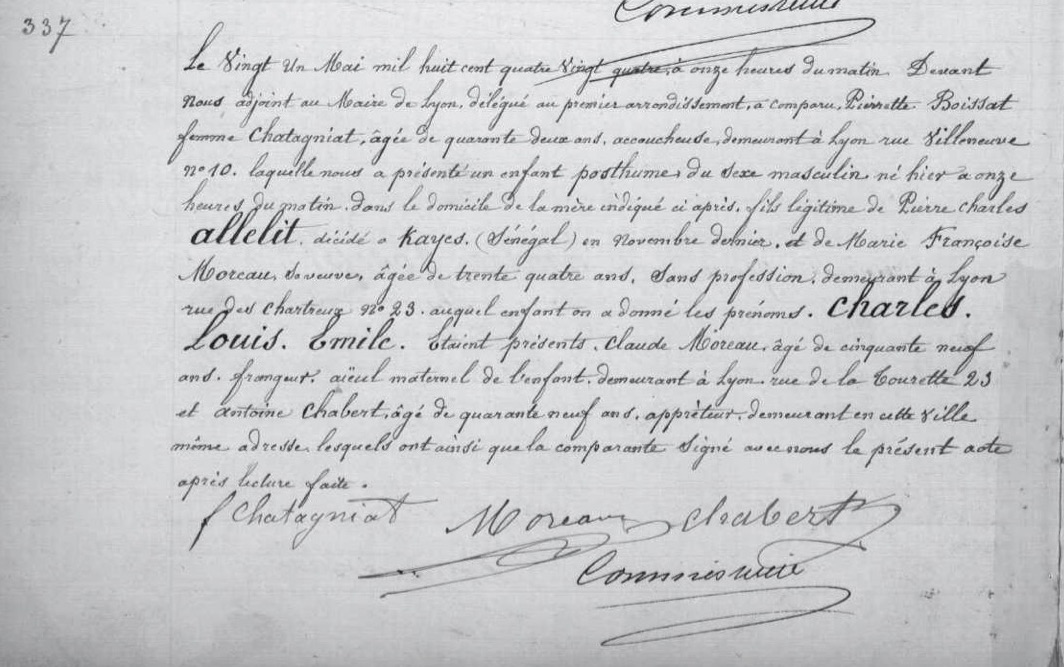 337
Le Vingt Un Mai mil huit cent quatre vingt quatre, à onze heures du matin. Devant
nous, adjoint au Maire de Lyon, délégué au premier arrondissement, a comparu, Pierrette Boissat
femme Chatagniat, âgée de quarante deux ans, accoucheuse, demeurant à Lyon rue Villeneuve
n° 10. laquelle nous a présenté un enfant posthume, du sexe masculin né hier à onze
heures du matin, dans le domicile de la mère indiqué ci après, fils légitime de Pierre Charles
allelit, décédé à Kayes, (Sénégal) en novembre dernier, et de Marie Françoise
Moreau, sa veuve, âgée de trente quatre ans, sans profession, demeurant à Lyon
rue des Chartreux n° 23. auquel enfant on a donné les prénoms. Charles.
Louis. Emile. Etaient présents, Claude Moreau, âgé de cinquante neuf
ans, frangeur, aïeul maternel de l'enfant, demeurant à Lyon rue de la Tourette 23
et antoine Chabert, âgé de quarante neuf ans, apprêteur, demeurant en cette ville
même adresse, lesquels ont ainsi que la comparante signé avec nous le présent acte
après lecture faite.
f Chatagniat Moreau Chabert